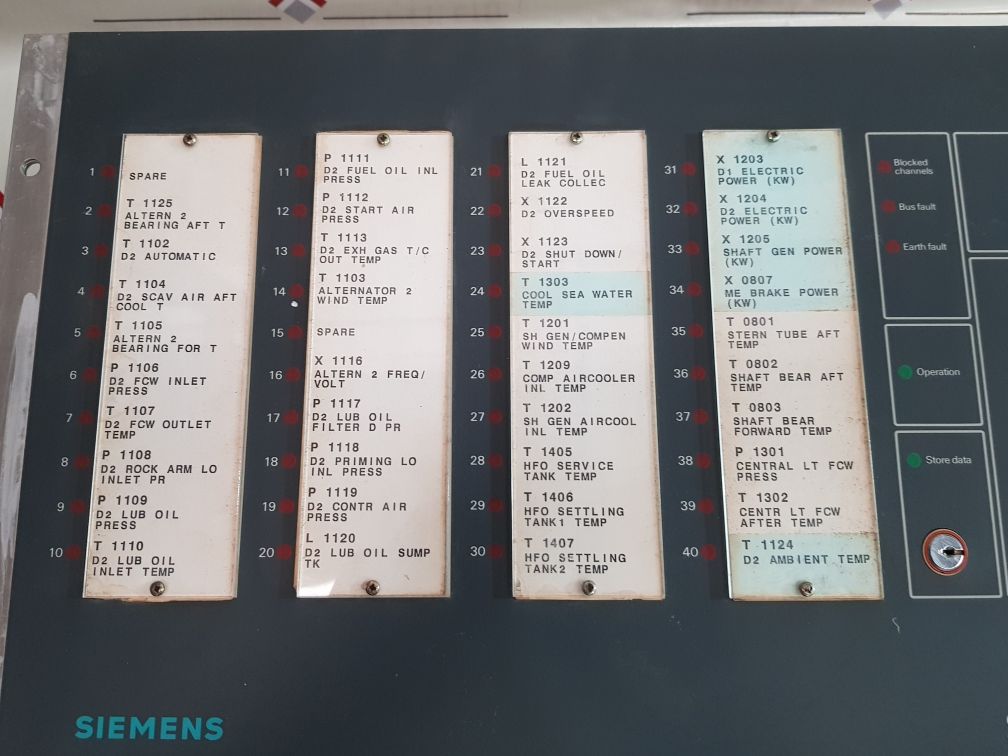 1
SPARE
2
T 1125
ALTERN 2
BEARING AFT T
3
T 1102
D2 AUTOMATIC
4
T 1104
D2 SCAV AIR AFT
COOL T
5
T 1105
ALTERN 2
BEARING FOR T
6
P 1106
D2 FCW INLET
PRESS
7
T 1107
D2 FCW OUTLET
TEMP
8
P 1108
D2 ROCK ARM LO
INLET PR
9
P 1109
D2 LUB OIL
PRESS
10
T 1110
D2 LUB OIL
INLET TEMP
11
P 1111
D2 FUEL OIL INL
PRESS
12
P 1112
D2 START AIR
PRESS
13
T 1113
D2 EXH GAS T/C
OUT TEMP
14
T 1103
ALTERNATOR 2
WIND TEMP
15
SPARE
16
X 1116
ALTERN 2 FREQ/
VOLT
17
P 1117
D2 LUB OIL
FILTER D PR
18
P 1118
D2 PRIMING LO
INL PRESS
19
P 1119
D2 CONTR AIR
PRESS
20
L 1120
D2 LUB OIL SUMP
TK
21
L 1121
D2 FUEL OIL
LEAK COLLEC
22
X 1122
D2 OVERSPEED
23
X 1123
D2 SHUT DOWN/
START
24
T 1303
COOL SEA WATER
TEMP
25
T 1201
SH GEN/COMPEN
WIND TEMP
26
T 1209
COMP AIRCOOLER
INL TEMP
27
T 1202
SH GEN AIRCOOL
INL TEMP
28
T 1405
HFO SERVICE
TANK TEMP
29
T 1406
HFO SETTLING
TANK1 TEMP
30
T 1407
HFO SETTLING
TANK2 TEMP
31
X 1203
D1 ELECTRIC
POWER (KW)
32
X 1204
D2 ELECTRIC
POWER (KW)
33
X 1205
SHAFT GEN POWER
(KW)
34
X 0807
ME BRAKE POWER
(KW)
35
T 0801
STERN TUBE AFT
TEMP
36
T 0802
SHAFT BEAR AFT
TEMP
37
T 0803
SHAFT BEAR
FORWARD TEMP
38
P 1301
CENTRAL LT FCW
PRESS
39
T 1302
CENTR LT FCW
AFTER TEMP
40
T 1124
D2 AMBIENT TEMP
Blocked
channels
Bus fault
Earth fault
Operation
Store data
SIEMENS